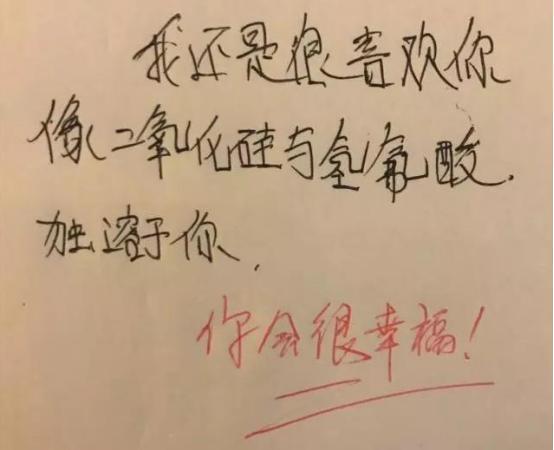 我还是很喜欢你
像二氧化硅与氢氟酸.
独溶于你.
你会很幸福!